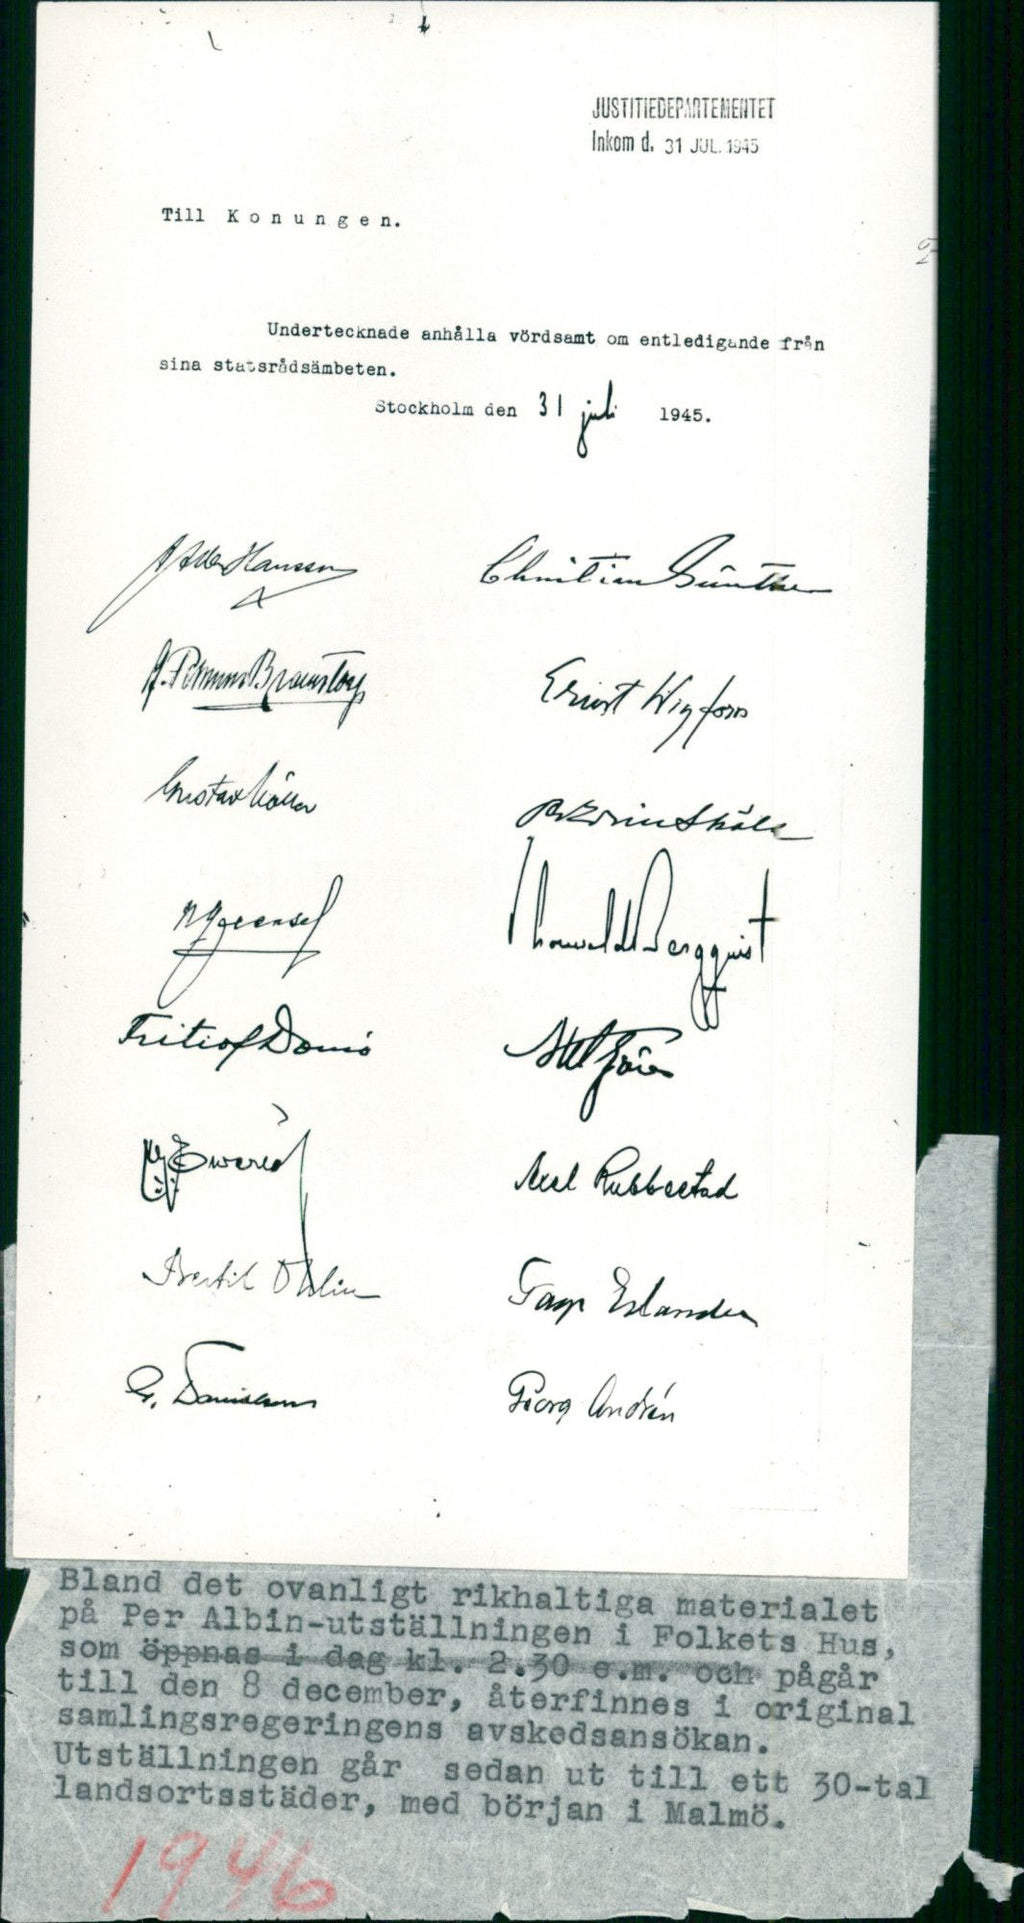 JUSTITIEDEPARTEMENTET
Inkom d. 31 JUL. 1945
Till Konungen.
Undertecknade anhålla vördsamt om entledigande från
sina statsrådsämbeten.
Stockholm den 31 juli 1945.
Albin Hansson Christian Günther
K. Pehrsson Bramstorp Ernst Wigforss
Gustav Möller Per Edvin Sköld
N Quensel Thorwald Bergquist
Fritiof Domö Gjöres
Ewerlöf Axel Rubbestad
Bertil Ohlin Tage Erlander
G. Danielson Georg Andrén
Bland det ovanligt rikhaltiga materialet
på Per Albin-utställningen i Folkets Hus,
som öppnas i dag kl. 2.30 e.m. och pågår
till den 8 december, återfinnes i original
samlingsregeringens avskedsansökan.
Utställningen går sedan ut till ett 30-tal
landsortsstäder, med början i Malmö.
1946